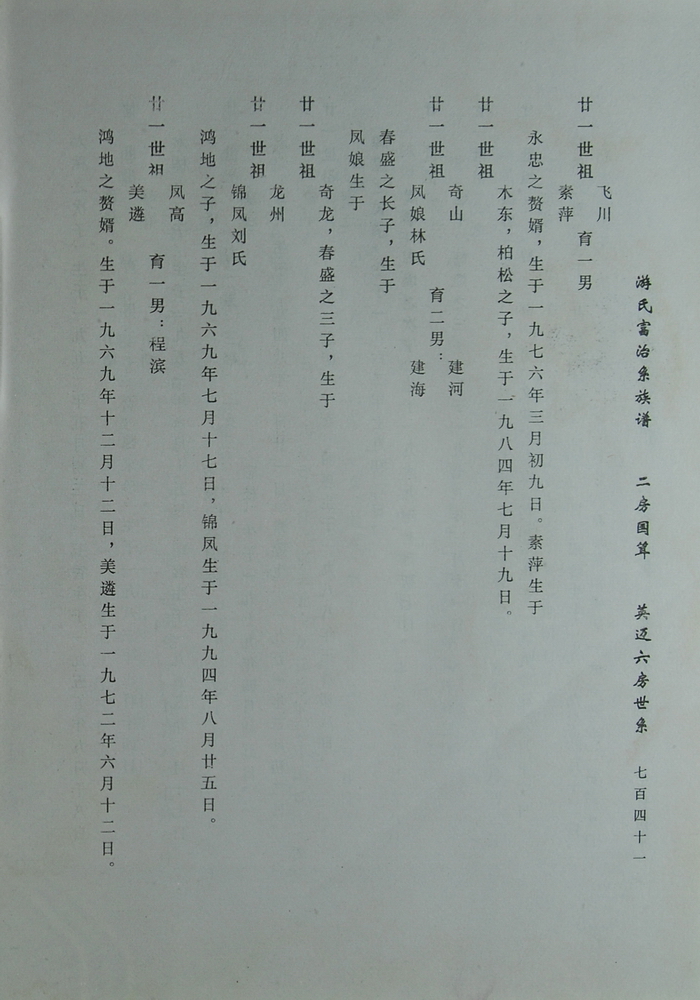 游民富治系族谱 二房国算 英迈六房世系 七百四十一
飞川
廿一世祖 育一男
素萍
永忠之赘婿，生于一九七六年三月初九日。素萍生于
木东，柏松之子，生于一九八四年七月十九日。
廿一世祖
奇山 建河
廿一世祖 育二男：
凤娘林氏 建海
春盛之长子，生于
凤娘生于
奇龙，春盛之三子，生于
廿一世祖
龙州
廿一世祖
锦凤刘氏
鸿地之子，生于一九六九年七月十七日，锦凤生于一九九四年八月廿五日。
凤高
廿一世祖 育一男：程滨
美遴
鸿地之赘婿。生于一九六九年十二月十二日，美遴生于一九七二年六月十二日。